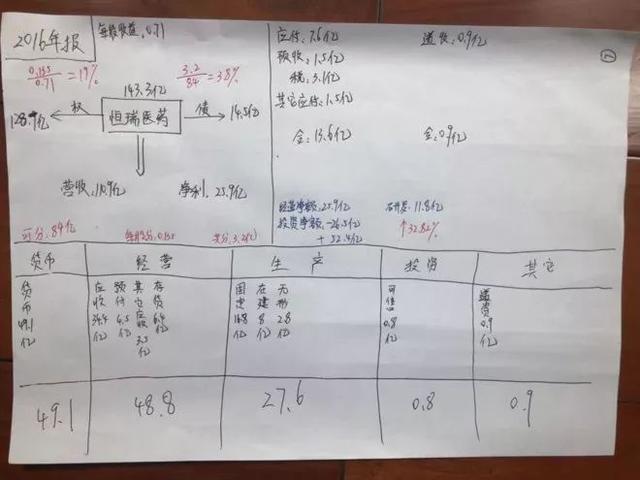 2016年报
每股收益:0.71
0.135
0.71
=19%
3.2
84
=3.8%
143.3亿
权
恒瑞医药
债
14.5亿
营收:110.9亿
净利:25.9亿
可分:84亿
每股分:0.135
共分:3.2亿
应付:7.6亿
递收:0.9亿
预收:1.5亿
税:3.1亿
其它应付:1.5亿
合:13.6亿
合:0.9亿
经营净额:25.9亿
投资净额:-26.5亿
+52.4亿
研开发:11.8亿
↑32.82%
货币
经营
生产
投资
其它
货币49.1亿
应收34.4亿
预付4.5亿
其它应收3.5亿
存货6.4亿
固定16.8亿
在建8亿
无形2.8亿
可售0.8亿
递资0.9亿
49.1
48.8
27.6
0.8
0.9